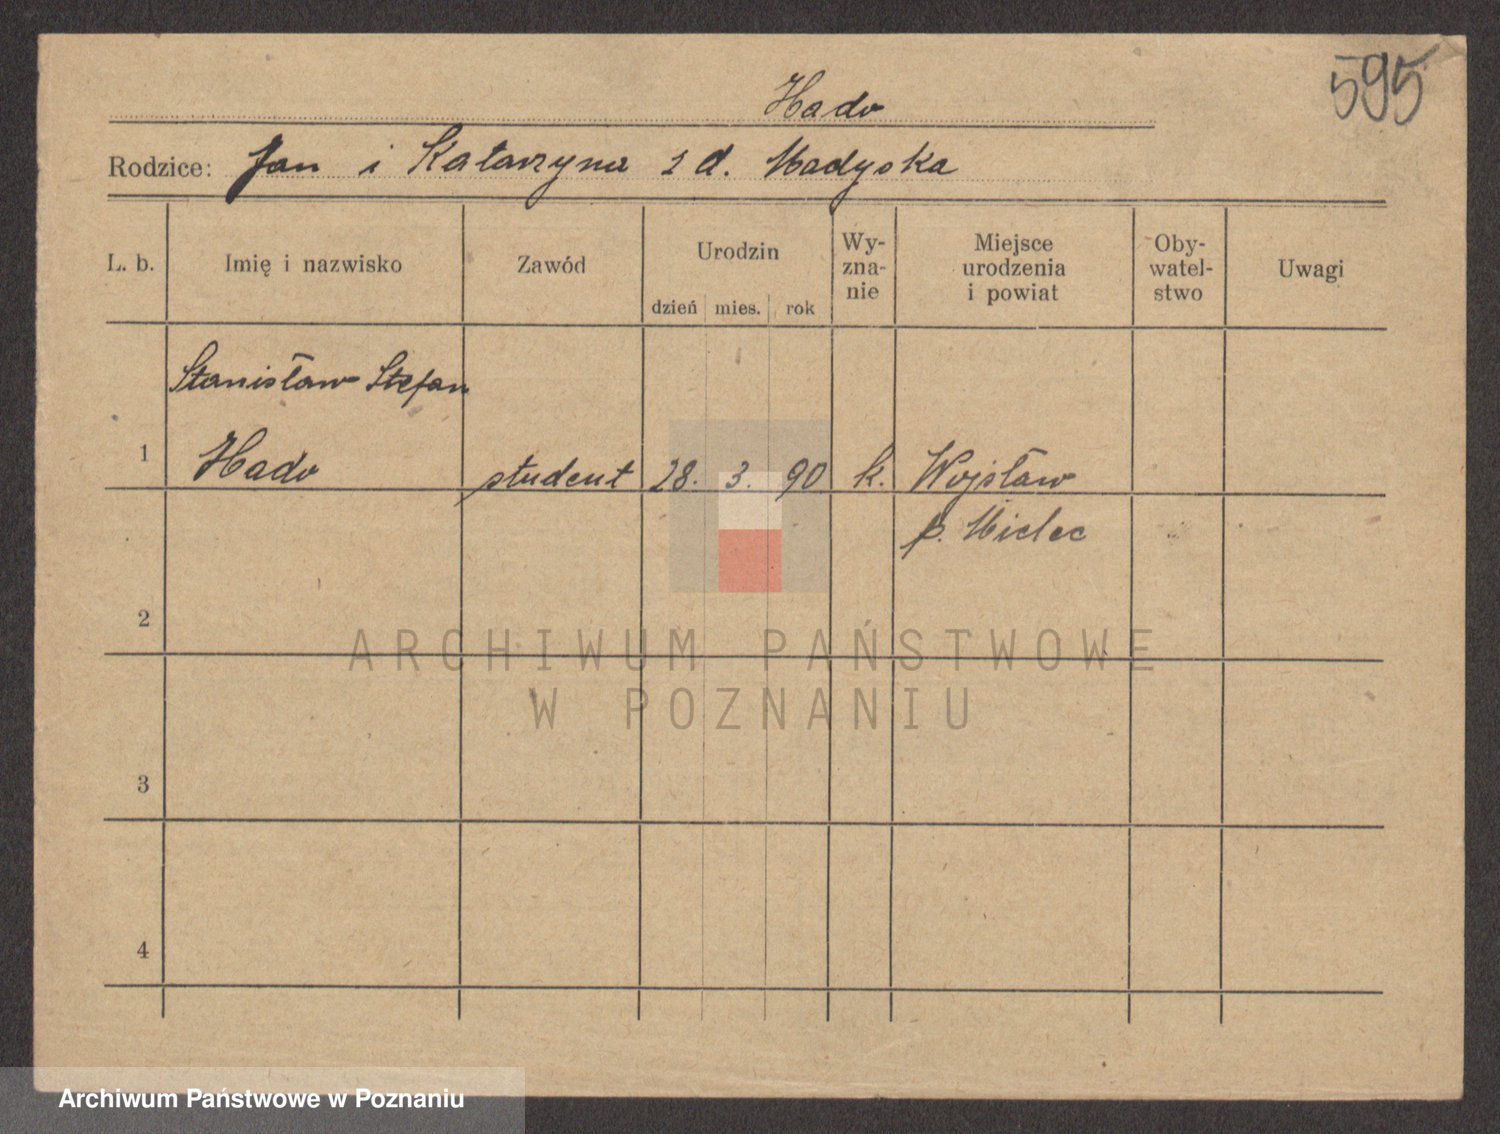 595
Hado
Rodzice: Jan i Katarzyna z d. Madyska
L. b.
Imię i nazwisko
Zawód
Urodzin
dzień mies. rok
Wy-
zna-
nie
Miejsce
urodzenia
i powiat
Oby-
watel-
stwo
Uwagi
Stanisław Stefan
1 Hado student 28. 3. 90 k. Wojsław
p. Mielec
2
ARCHIWUM PAŃSTWOWE
W POZNANIU
3
4
Archiwum Państwowe w Poznaniu